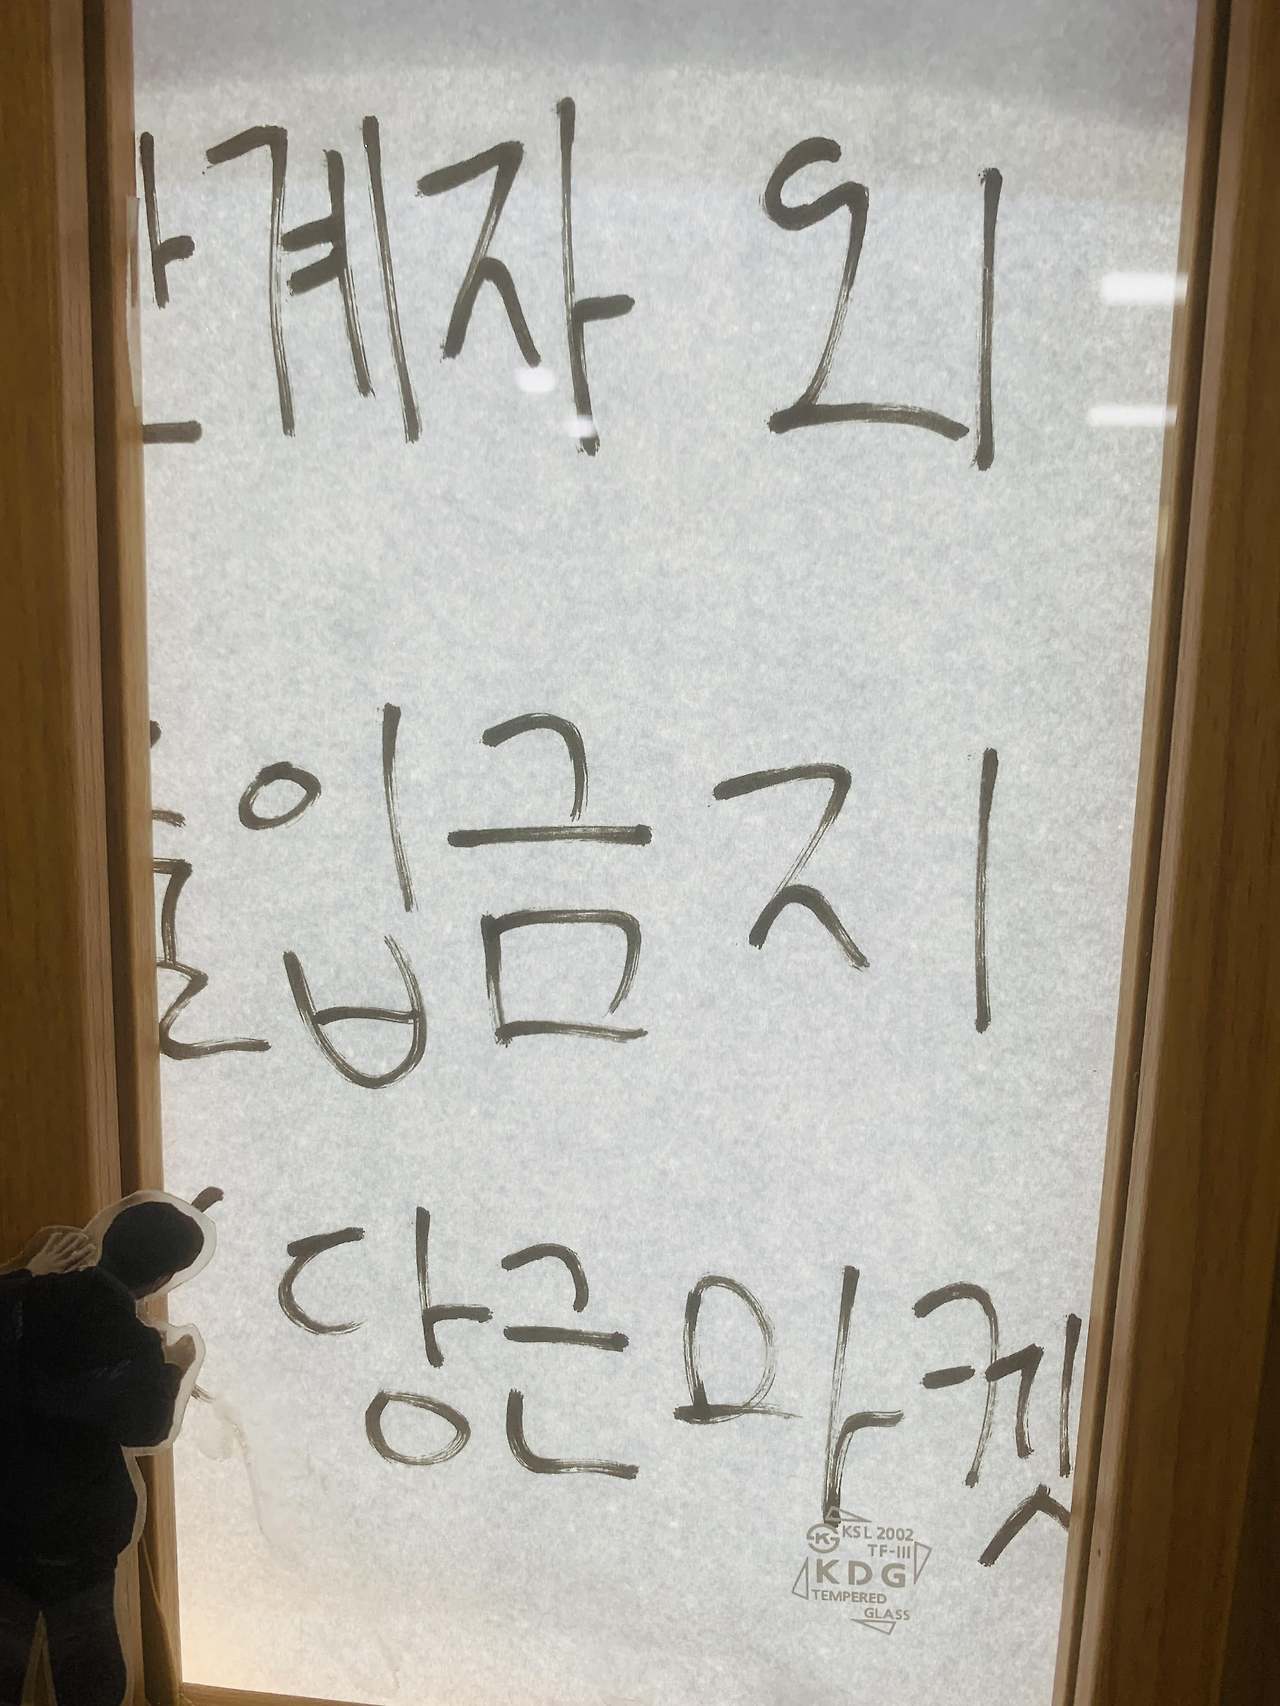 관계자 외
출입금지
당근마켓
KSL 2002
TF-III
KDG
TEMPERED
GLASS